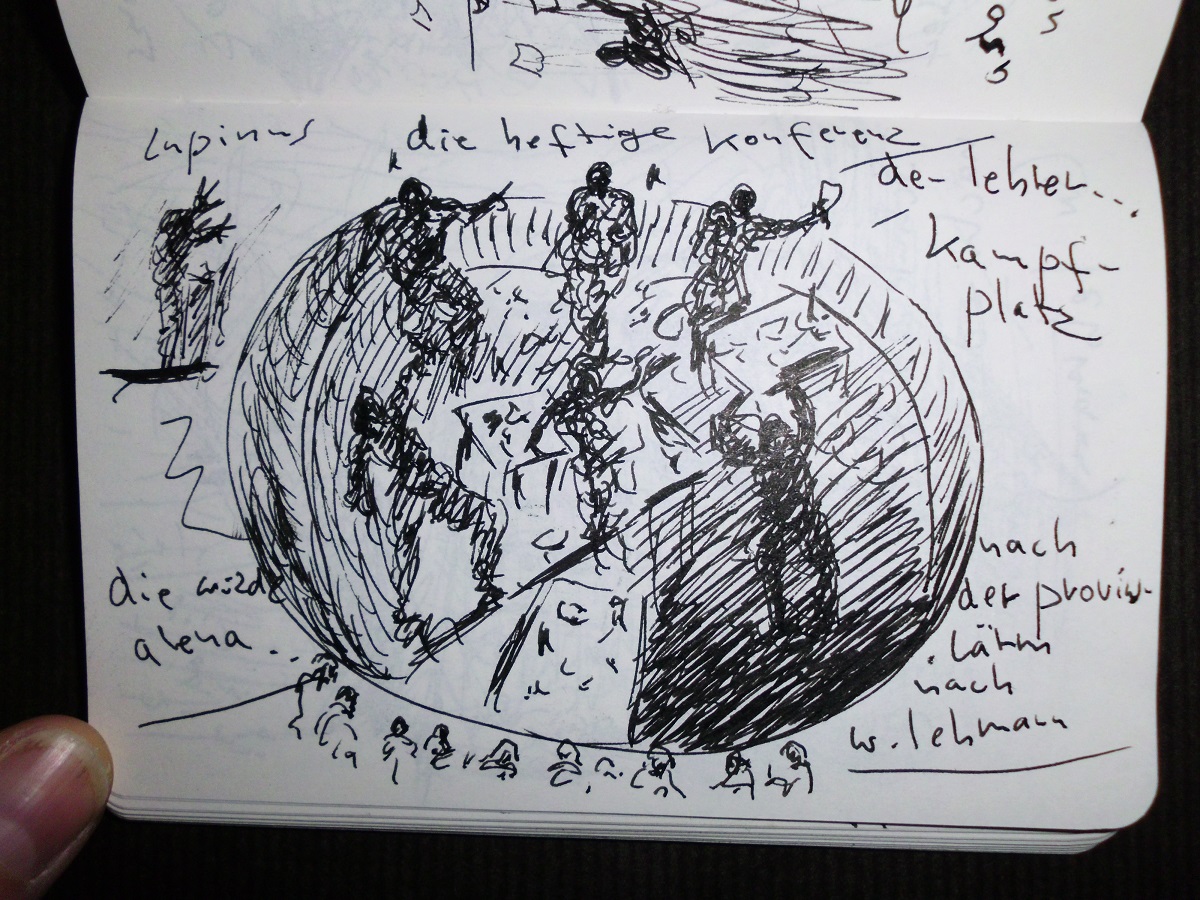 Lupinus
die heftige Konferenz
der lehrer...
Kampf-
platz
die wilde
arena...
nach
der provin-
lärm
nach
w. lehmann